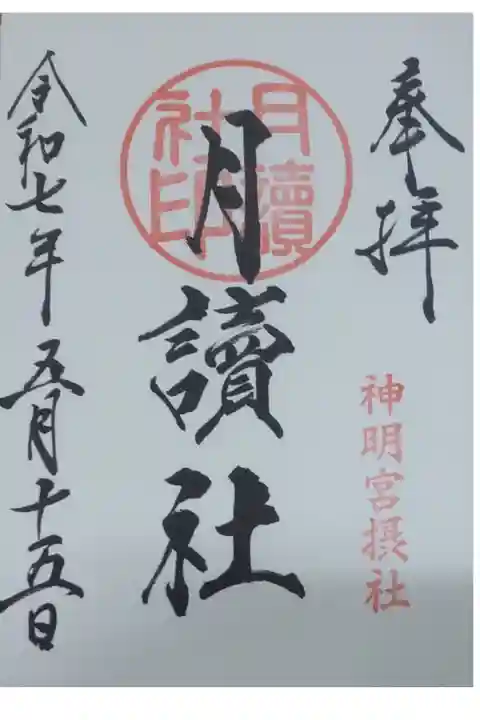 奉拝
神明宮摂社
月讀社
月讀社印
令和七年五月十五日